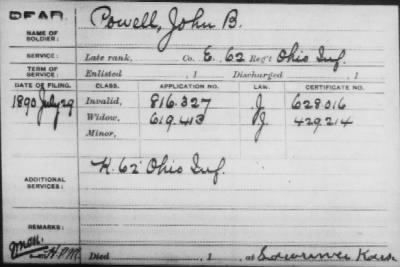 DEAD.
NAME OF SOLDIER: Powell, John B.
SERVICE: Late rank, Co. E, 62 Reg't Ohio Inf.
TERM OF SERVICE: Enlisted , 1 Discharged , 1
DATE OF FILING. CLASS. APPLICATION NO. LAW. CERTIFICATE NO.
1890 July 29 Invalid, 816.327 J. 628.016
Widow, 619.413 J. 429.214
Minor,
ADDITIONAL SERVICES: K. 62 Ohio Inf.
REMARKS:
Died , 1 , at Kas.